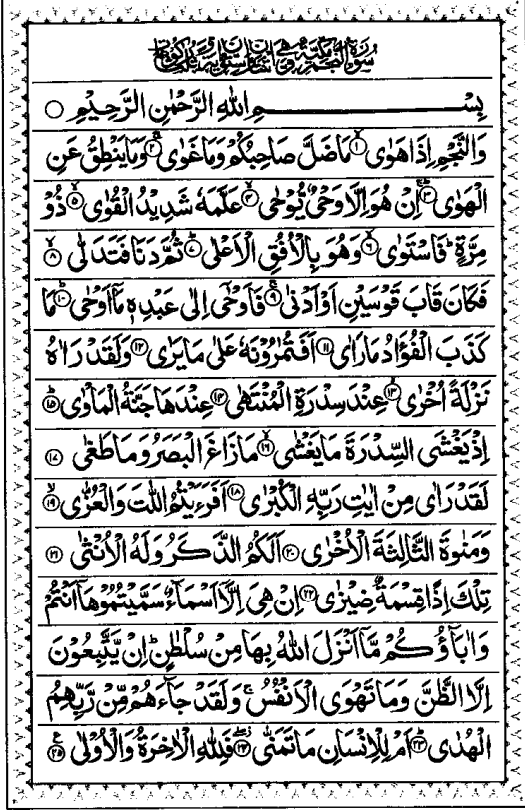 سُوْرَةُ النَّجْمِ مَكِّيَّةٌ
بِسْمِ اللّٰهِ الرَّحْمٰنِ الرَّحِیْمِ ○
وَالنَّجْمِ اِذَا هَوٰى ۙ۝۱ مَا ضَلَّ صَاحِبُكُمْ وَمَا غَوٰى ۚ۝۲ وَمَا یَنْطِقُ عَنِ
الْهَوٰى ؕ۝۳ اِنْ هُوَ اِلَّا وَحْیٌ یُّوْحٰى ۙ۝۴ عَلَّمَهٗ شَدِیْدُ الْقُوٰى ۙ۝۵ ذُوْ
مِرَّةٍ ؕ فَاسْتَوٰى ۙ۝۶ وَهُوَ بِالْاُفُقِ الْاَعْلٰى ؕ۝۷ ثُمَّ دَنَا فَتَدَلّٰى ۙ۝۸
فَكَانَ قَابَ قَوْسَیْنِ اَوْ اَدْنٰى ۚ۝۹ فَاَوْحٰۤى اِلٰى عَبْدِهٖ مَاۤ اَوْحٰى ؕ۝۱۰ مَا
كَذَبَ الْفُؤَادُ مَا رَاٰى ۝۱۱ اَفَتُمٰرُوْنَهٗ عَلٰى مَا یَرٰى ۝۱۲ وَلَقَدْ رَاٰهُ
نَزْلَةً اُخْرٰى ۙ۝۱۳ عِنْدَ سِدْرَةِ الْمُنْتَهٰى ۝۱۴ عِنْدَهَا جَنَّةُ الْمَاْوٰى ؕ۝۱۵
اِذْ یَغْشَى السِّدْرَةَ مَا یَغْشٰى ۙ۝۱۶ مَا زَاغَ الْبَصَرُ وَمَا طَغٰى ۝۱۷
لَقَدْ رَاٰى مِنْ اٰیٰتِ رَبِّهِ الْكُبْرٰى ۝۱۸ اَفَرَءَیْتُمُ اللّٰتَ وَالْعُزّٰى ۙ۝۱۹
وَمَنٰوةَ الثَّالِثَةَ الْاُخْرٰى ۝۲۰ اَلَكُمُ الذَّكَرُ وَلَهُ الْاُنْثٰى ۝۲۱
تِلْكَ اِذًا قِسْمَةٌ ضِیْزٰى ۝۲۲ اِنْ هِیَ اِلَّاۤ اَسْمَآءٌ سَمَّیْتُمُوْهَاۤ اَنْتُمْ
وَاٰبَآؤُكُمْ مَّاۤ اَنْزَلَ اللّٰهُ بِهَا مِنْ سُلْطٰنٍ ؕ اِنْ یَّتَّبِعُوْنَ
اِلَّا الظَّنَّ وَمَا تَهْوَى الْاَنْفُسُ ۚ وَلَقَدْ جَآءَهُمْ مِّنْ رَّبِّهِمُ
الْهُدٰى ؕ۝۲۳ اَمْ لِلْاِنْسَانِ مَا تَمَنّٰى ۝۲۴ فَلِلّٰهِ الْاٰخِرَةُ وَالْاُوْلٰى ۝۲۵ ع